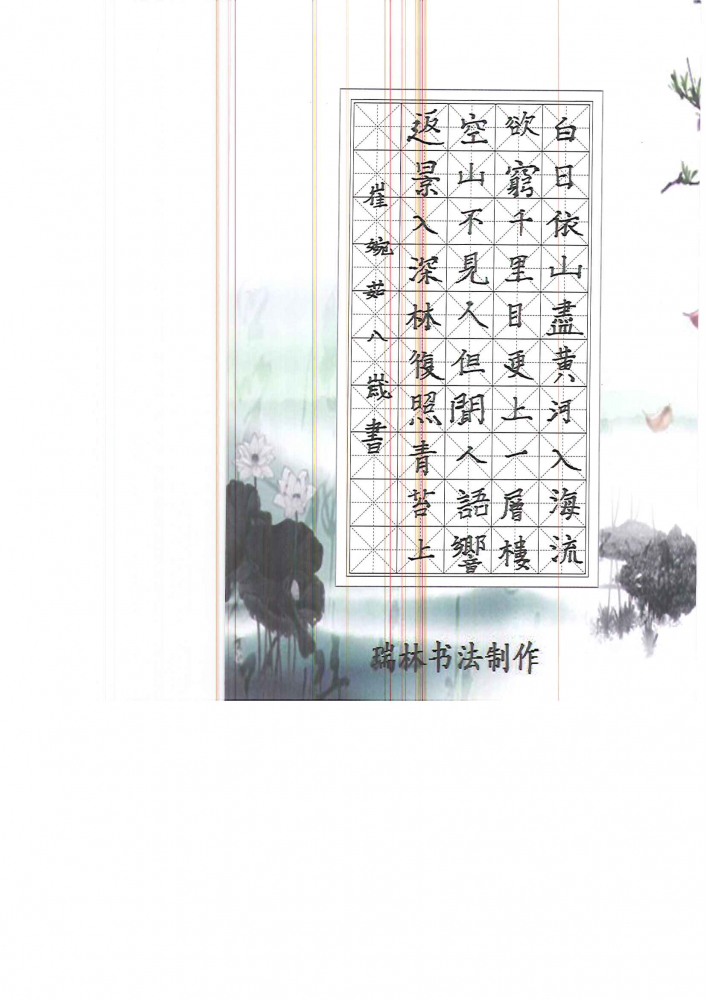 白日依山盡黄河入海流
欲窮千里目更上一層樓
空山不見人但聞人語響
返景入深林復照青苔上
崔婉茹八歲書
瑞林书法制作